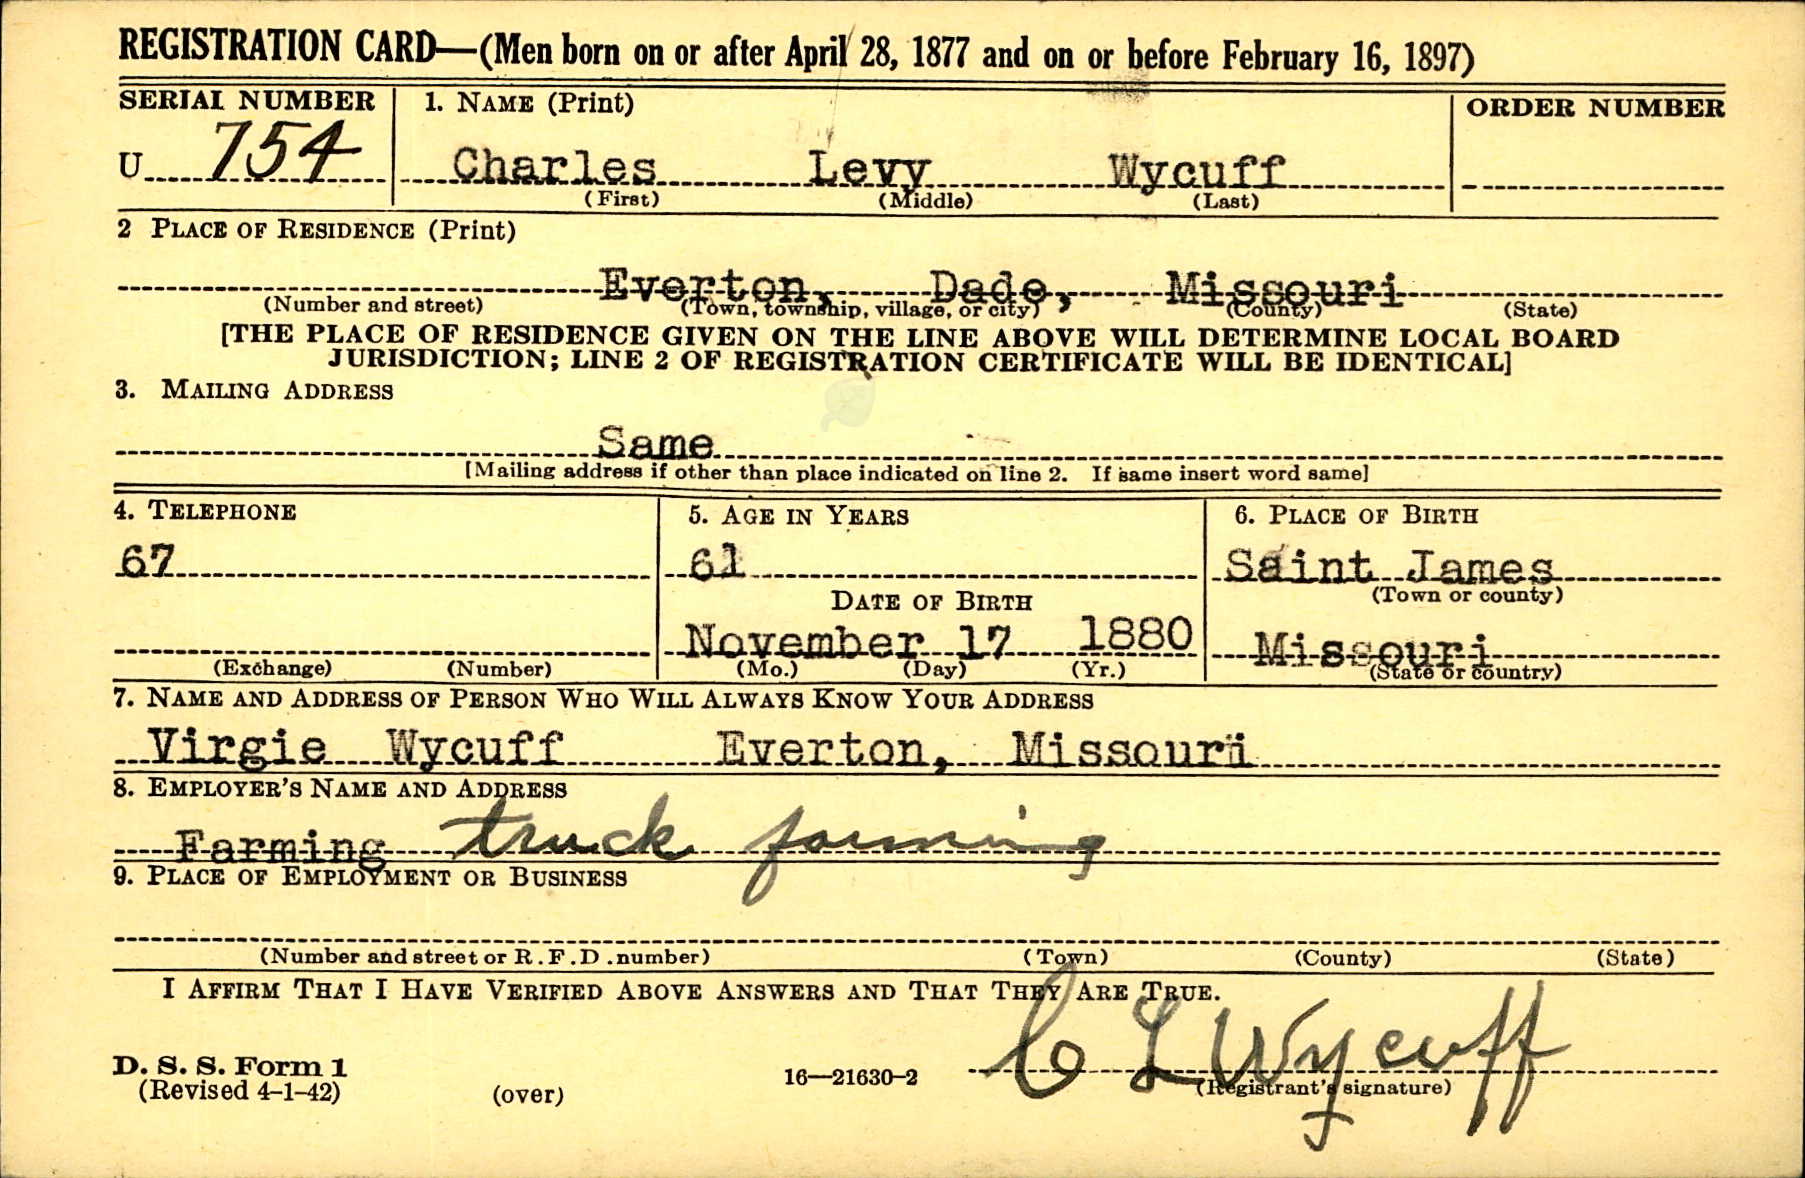 REGISTRATION CARD—(Men born on or after April 28, 1877 and on or before February 16, 1897)
SERIAL NUMBER 1. NAME (Print) ORDER NUMBER
U 754 Charles Levy Wycuff
(First) (Middle) (Last)
2 PLACE OF RESIDENCE (Print)
Everton, Dade, Missouri
(Number and street) (Town, township, village, or city) (County) (State)
[THE PLACE OF RESIDENCE GIVEN ON THE LINE ABOVE WILL DETERMINE LOCAL BOARD
JURISDICTION; LINE 2 OF REGISTRATION CERTIFICATE WILL BE IDENTICAL]
3. MAILING ADDRESS
Same
[Mailing address if other than place indicated on line 2. If same insert word same]
4. TELEPHONE 5. AGE IN YEARS 6. PLACE OF BIRTH
67 61 Saint James
(Town or county)
DATE OF BIRTH
November 17 1880 Missouri
(Exchange) (Number) (Mo.) (Day) (Yr.) (State or country)
7. NAME AND ADDRESS OF PERSON WHO WILL ALWAYS KNOW YOUR ADDRESS
Virgie Wycuff Everton, Missouri
8. EMPLOYER'S NAME AND ADDRESS
Farming truck farming
9. PLACE OF EMPLOYMENT OR BUSINESS
(Number and street or R.F.D. number) (Town) (County) (State)
I AFFIRM THAT I HAVE VERIFIED ABOVE ANSWERS AND THAT THEY ARE TRUE.
C L Wycuff
D. S. S. Form 1
(Revised 4-1-42) (over) 16—21630-2 (Registrant's signature)